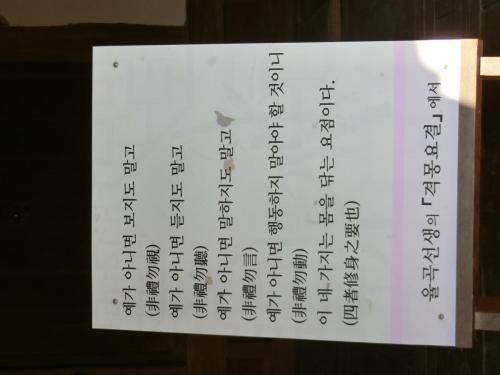 예가 아니면 보지도 말고
(非禮勿視)
예가 아니면 듣지도 말고
(非禮勿聽)
예가 아니면 말하지도 말고
(非禮勿言)
예가 아니면 행동하지 말아야 할 것이니
(非禮勿動)
이 네 가지는 몸을 닦는 요점이다.
(四者修身之要也)
율곡선생의 「격몽요결」에서